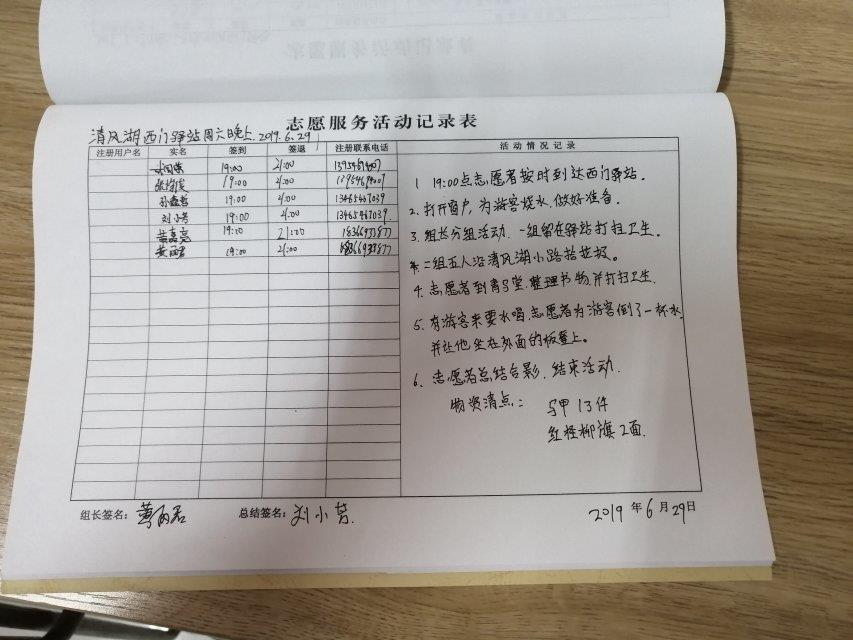 志愿服务活动记录表
清风湖西门驿站周六晚上 2019.6.29
注册用户名 实名 签到 签退 注册联系电话 活动情况记录
19:00 21:00
19:00 21:00
19:00 21:00 13465467039
刘小芳 19:00 21:00 13465467039
黄嘉亮 19:00 21:00 18366937877
黄丽君 19:00 21:00 18366937877
1 19:00点志愿者按时到达西门驿站。
2. 打开窗户,为游客烧水,做好准备。
3. 组长分组活动.一组留在驿站打扫卫生。
二组五人沿清风湖小路捡垃圾。
4. 志愿者到青鸟堂,整理书物,并打扫卫生.
5. 有游客来要水喝,志愿者为游客倒了一杯水,
并让他坐在外面的板凳上。
6. 志愿者总结合影.结束活动.
物资清点: 马甲13件
红柽柳旗2面.
组长签名: 黄丽君 总结签名: 刘小芳. 2019年6月29日